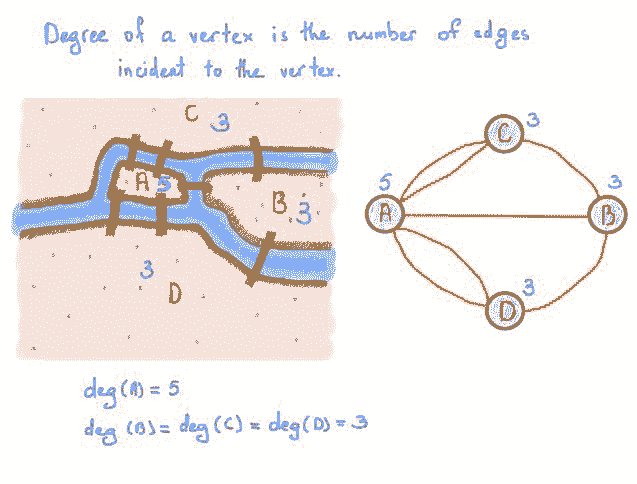 Degree of a vertex is the number of edges
incident to the vertex.
C 3
A 5
B 3
3
D
C 3
5
A
3
B
D 3
deg(A) = 5
deg (B) = deg(C) = deg(D) = 3